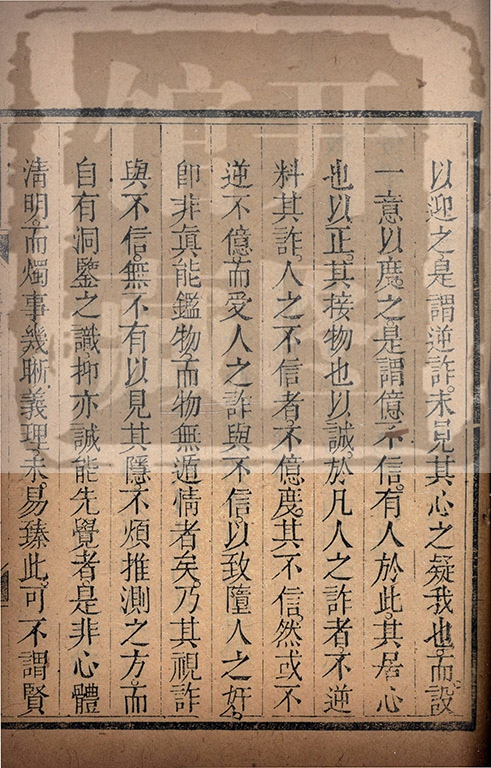 以迎之是謂逆詐。未見其心之疑我也。而設
一意以度。之是謂億不信。有人於此。其居心
也以正。其接物也以誠。於凡人之詐者。不逆
料其詐。人之不信者。不億度。其不信。然或不
逆不億。而受人之詐與不信。以致墮人之奸。
卽非眞能鑑物。而物無遁情者矣。乃其視詐
與不信。無不有以見其隱。不煩推測之方。而
自有洞鑒之識。抑亦誠能先覺者。是非心體
淸明。而燭事幾晰義理。未易臻此。可不謂賢